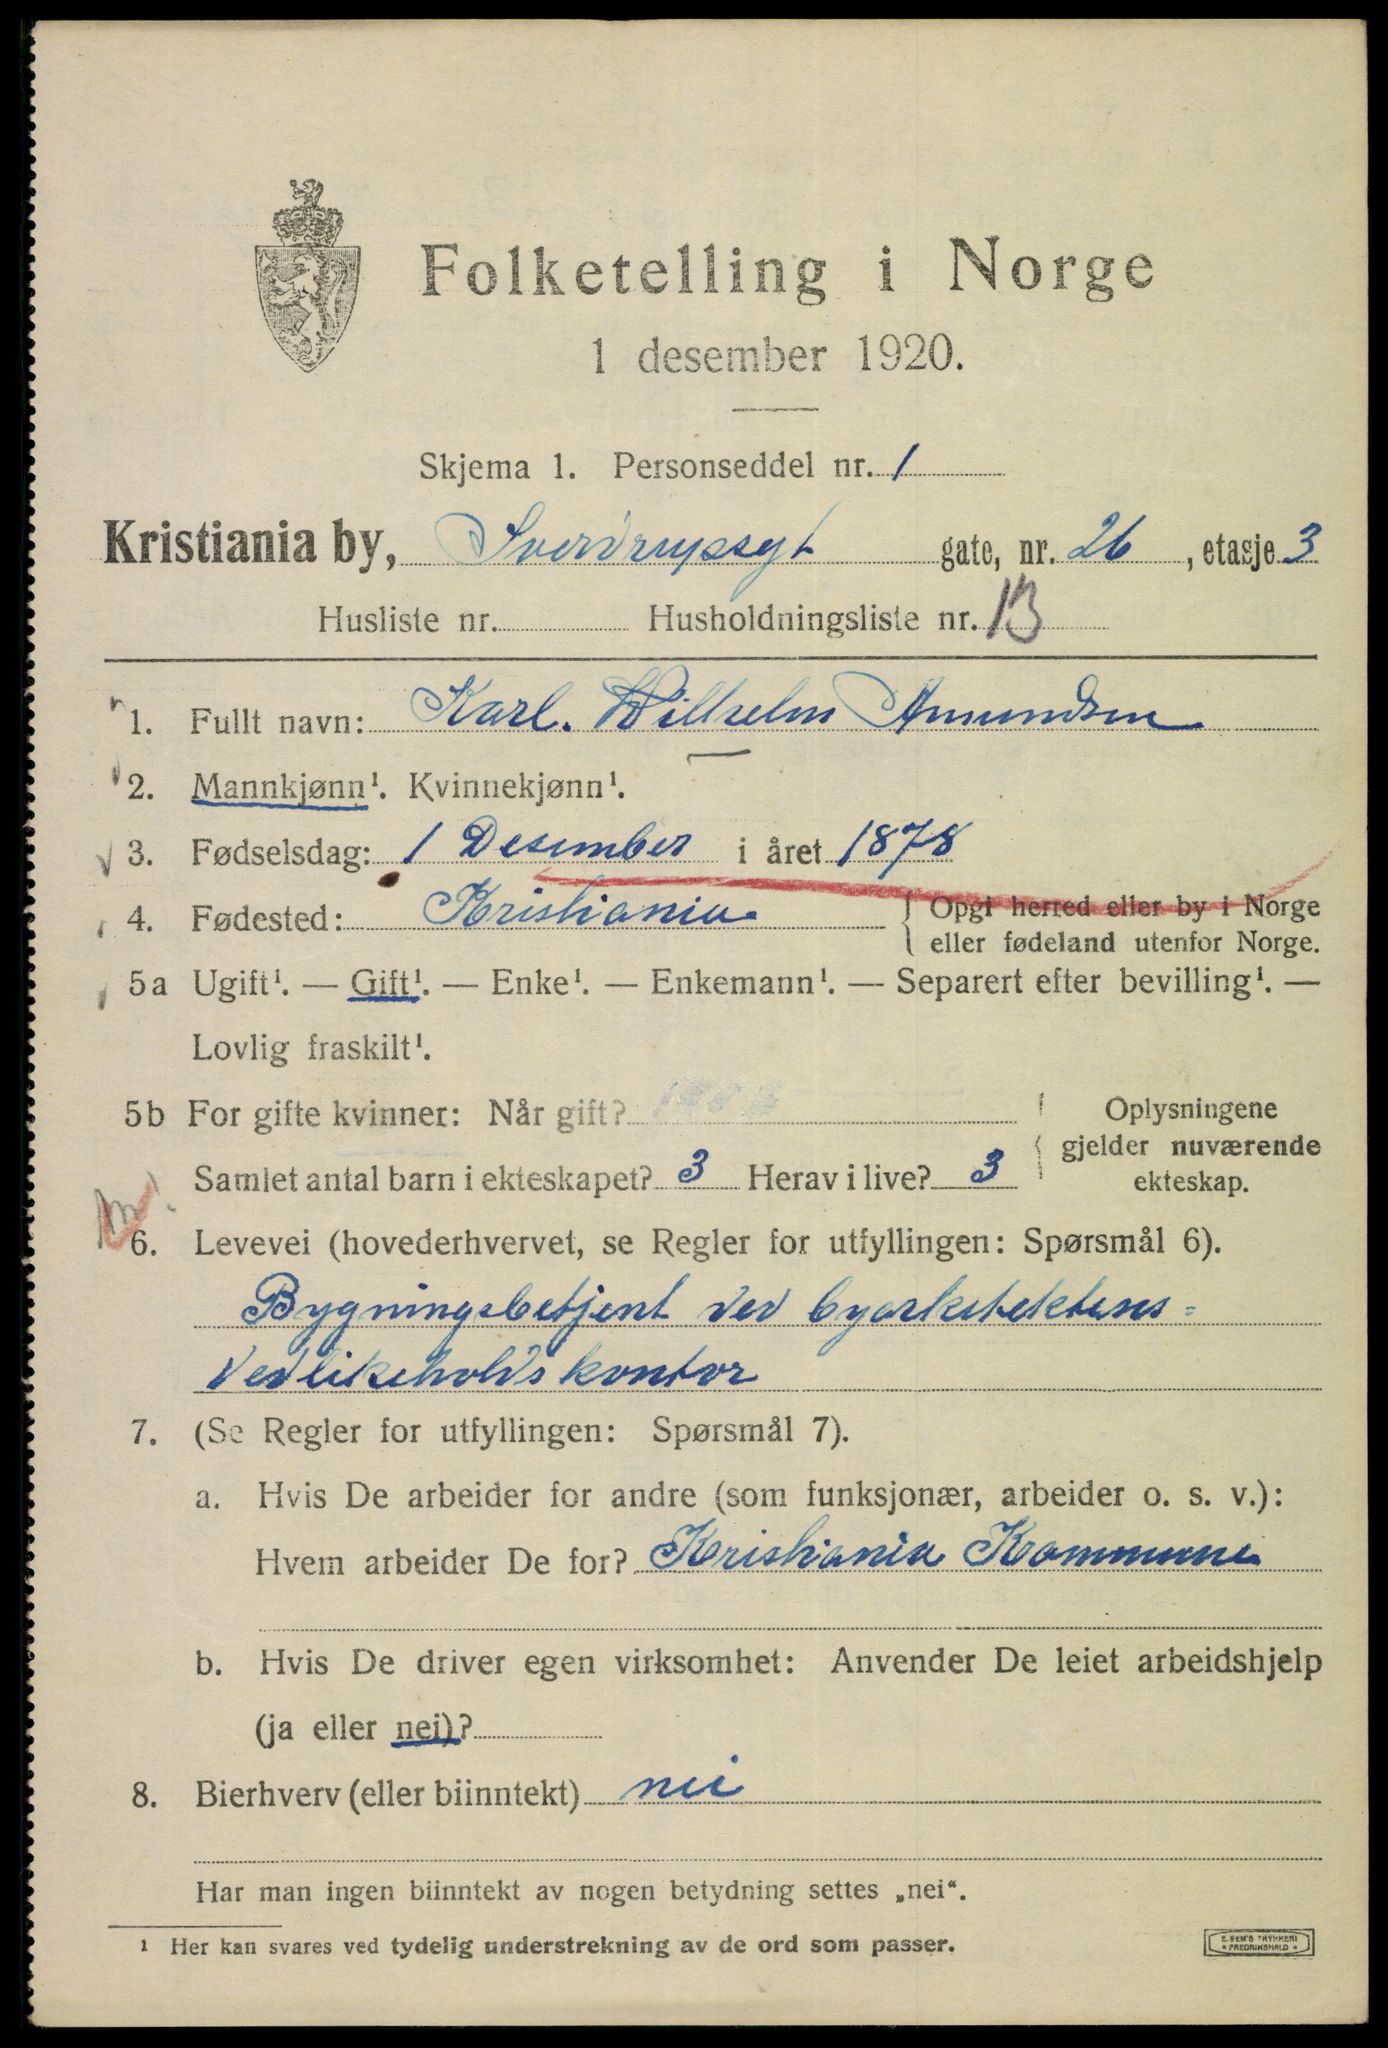 Folketelling i Norge
1 desember 1920.
Skjema 1. Personseddel nr. 1
Kristiania by, Sverdrupsgt gate, nr. 26, etasje 3
Husliste nr. Husholdningsliste nr. 13
1. Fullt navn: Karl. Wilhelm Amundsen
2. Mannkjønn¹. Kvinnekjønn¹.
3. Fødselsdag: 1 Desember i året 1878
4. Fødested: Kristiania. { Opgi herred eller by i Norge
eller fødeland utenfor Norge.
5a Ugift¹. — Gift¹. — Enke¹. — Enkemann¹. — Separert efter bevilling¹. —
Lovlig fraskilt¹.
5b For gifte kvinner: Når gift? Oplysningene
gjelder nuværende
Samlet antal barn i ekteskapet? 3 Herav i live? 3 ekteskap.
6. Levevei (hovederhvervet, se Regler for utfyllingen: Spørsmål 6).
Bygningsbetjent ved byarkitektens
vedlikeholdskontor
7. (Se Regler for utfyllingen: Spørsmål 7).
a. Hvis De arbeider for andre (som funksjonær, arbeider o. s. v.):
Hvem arbeider De for? Kristiania Kommune
b. Hvis De driver egen virksomhet: Anvender De leiet arbeidshjelp
(ja eller nei)?
8. Bierhverv (eller biinntekt) nei
Har man ingen biinntekt av nogen betydning settes „nei“.
¹ Her kan svares ved tydelig understrekning av de ord som passer.
E. SEM'S TRYKKERI
* FREDRIKSHALD *